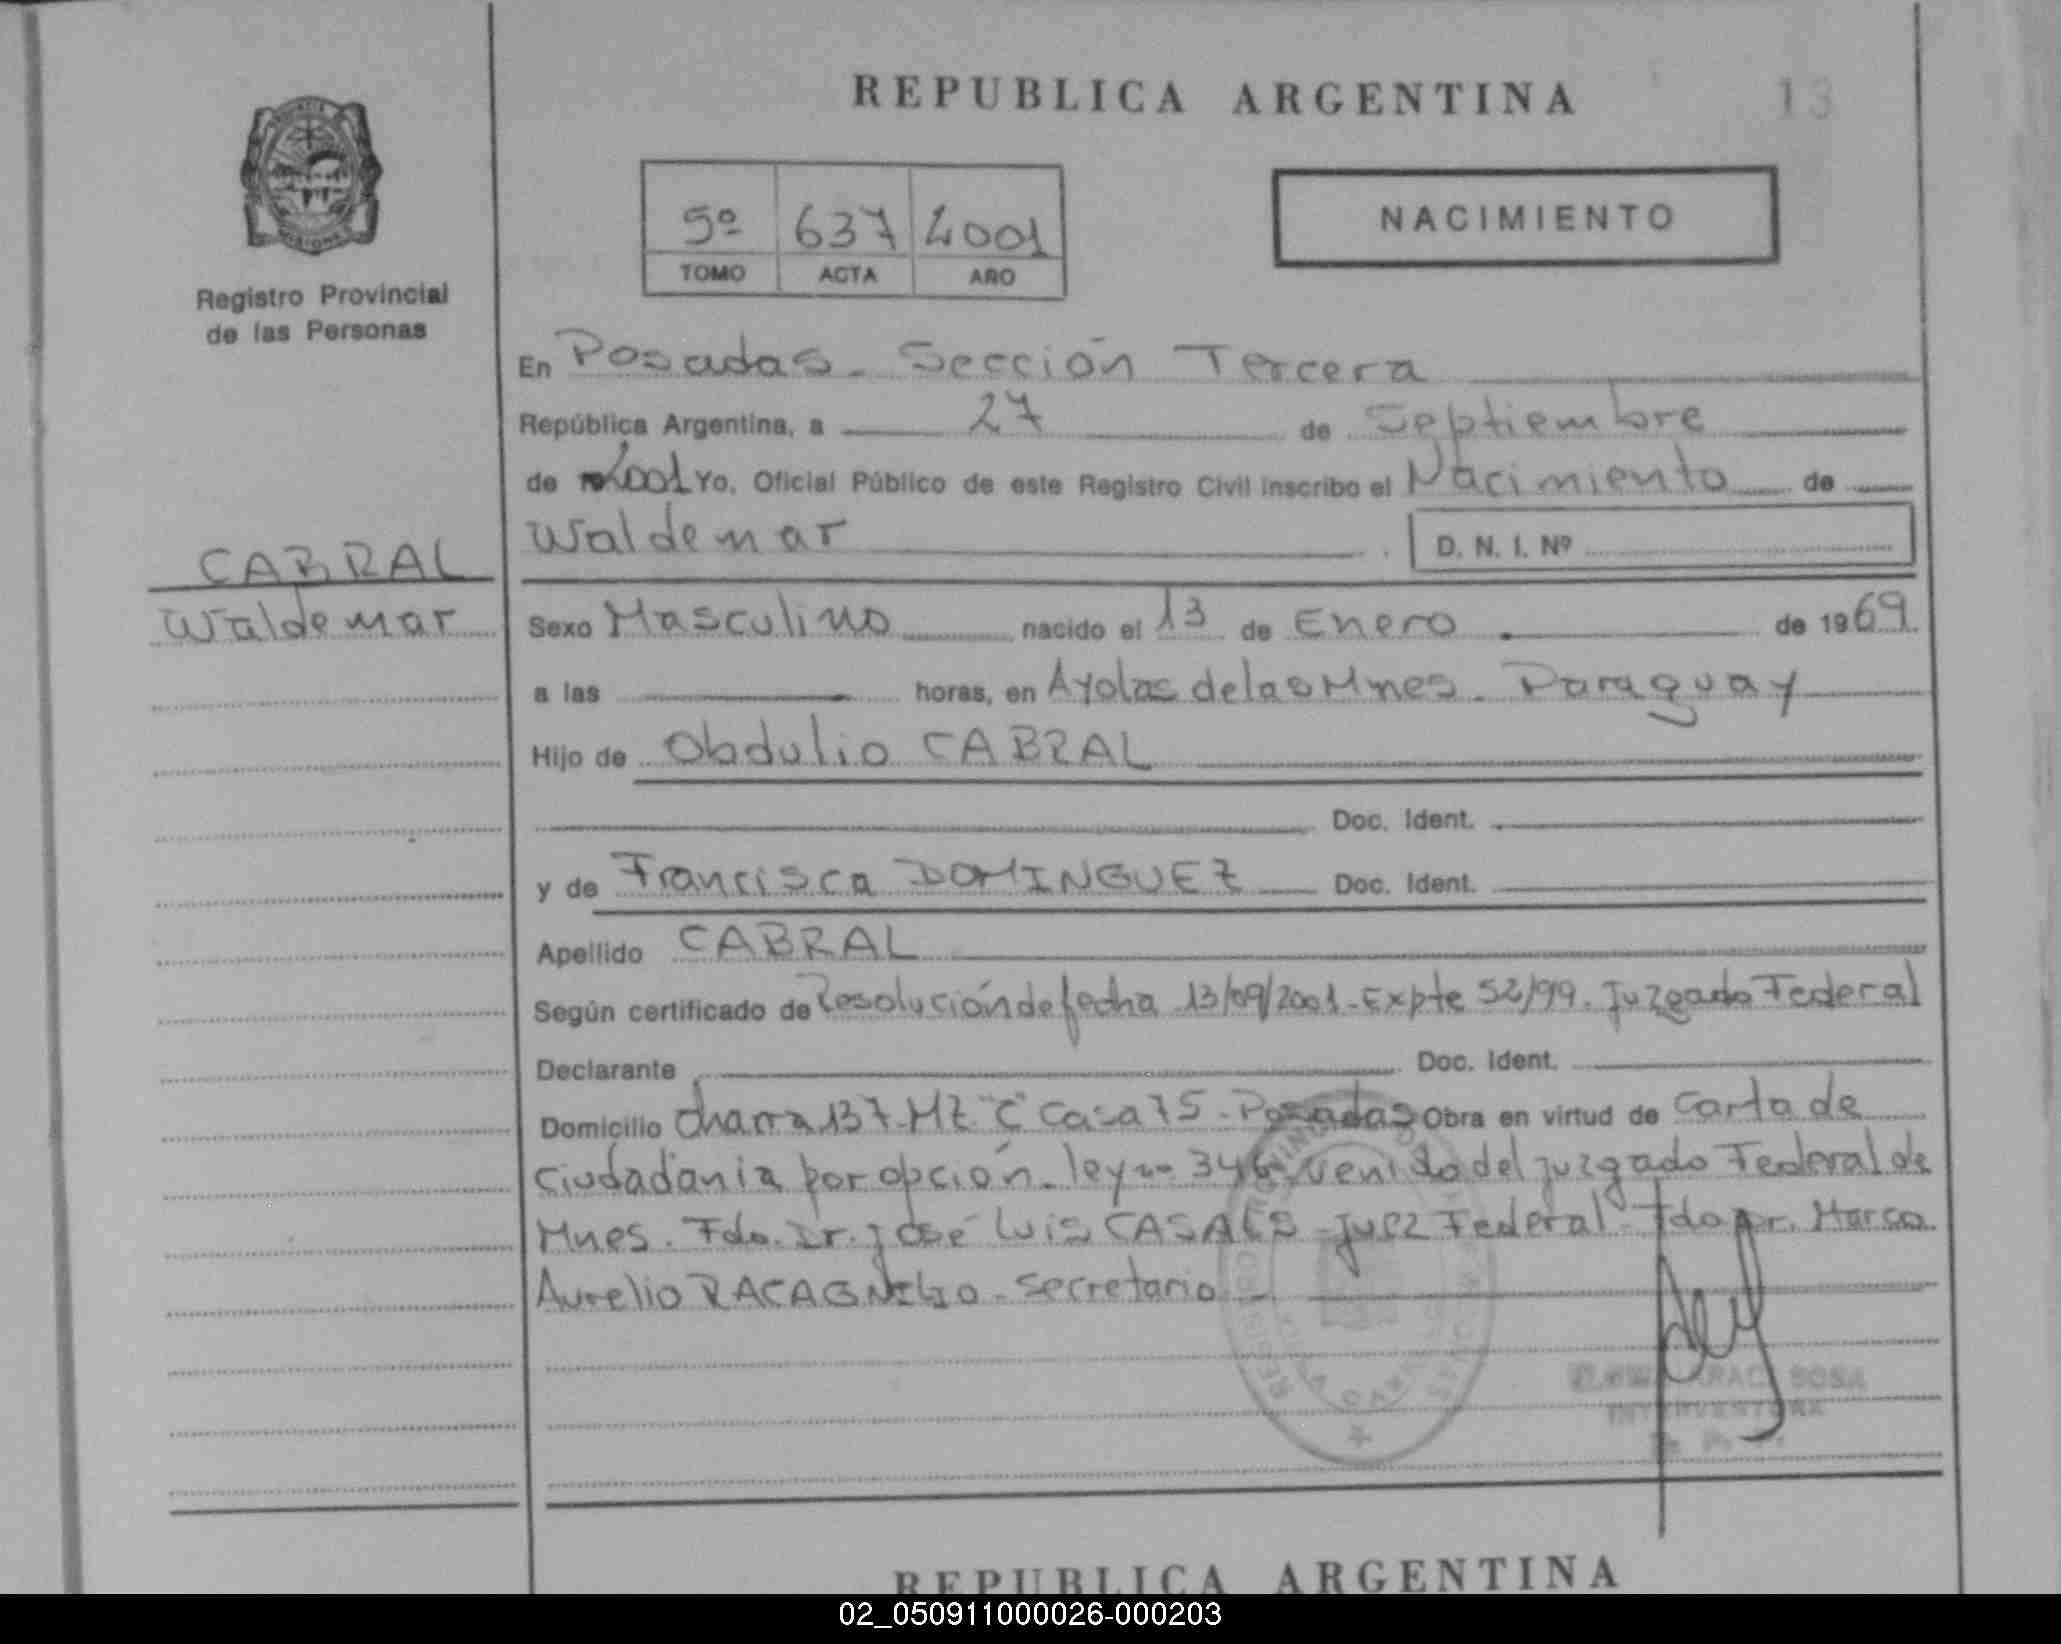 REPUBLICA ARGENTINA
13
5º 637 2001
TOMO ACTA AÑO
NACIMIENTO
Registro Provincial
de las Personas
En Posadas. Sección Tercera
República Argentina, a 27 de Septiembre
de 2001 Yo, Oficial Público de este Registro Civil inscribo el Nacimiento de
Waldemar D. N. I. Nº
CABRAL
Waldemar
Sexo Masculino nacido el 13 de Enero de 1969.
a las horas, en Ayolas de las Mnes. Paraguay
Hijo de Obdulio CABRAL
Doc. Ident.
y de Francisca DOMINGUEZ Doc. Ident.
Apellido CABRAL
Según certificado de Resolución de fecha 13/09/2001 - Expte 52/99. Juzgado Federal
Declarante Doc. Ident.
Domicilio chacra 137. Mz. "C" Casa 75 - Posadas Obra en virtud de Carta de
Ciudadania por opción. ley nº 346 venido del juzgado Federal de
Mnes. Fdo. Dr. José Luis CASALS - Juez Federal - Fdo Dr. Marco
Aurelio RACAGNI - Secretario
SOSA
INTERVENTORA
REPUBLICA ARGENTINA
02_050911000026-000203